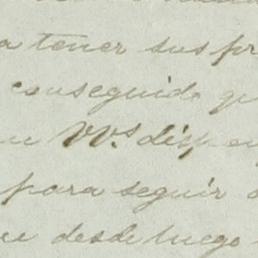 a tener sus pr
conseguido qu
Vs. dispon
para seguir
ue desde luego